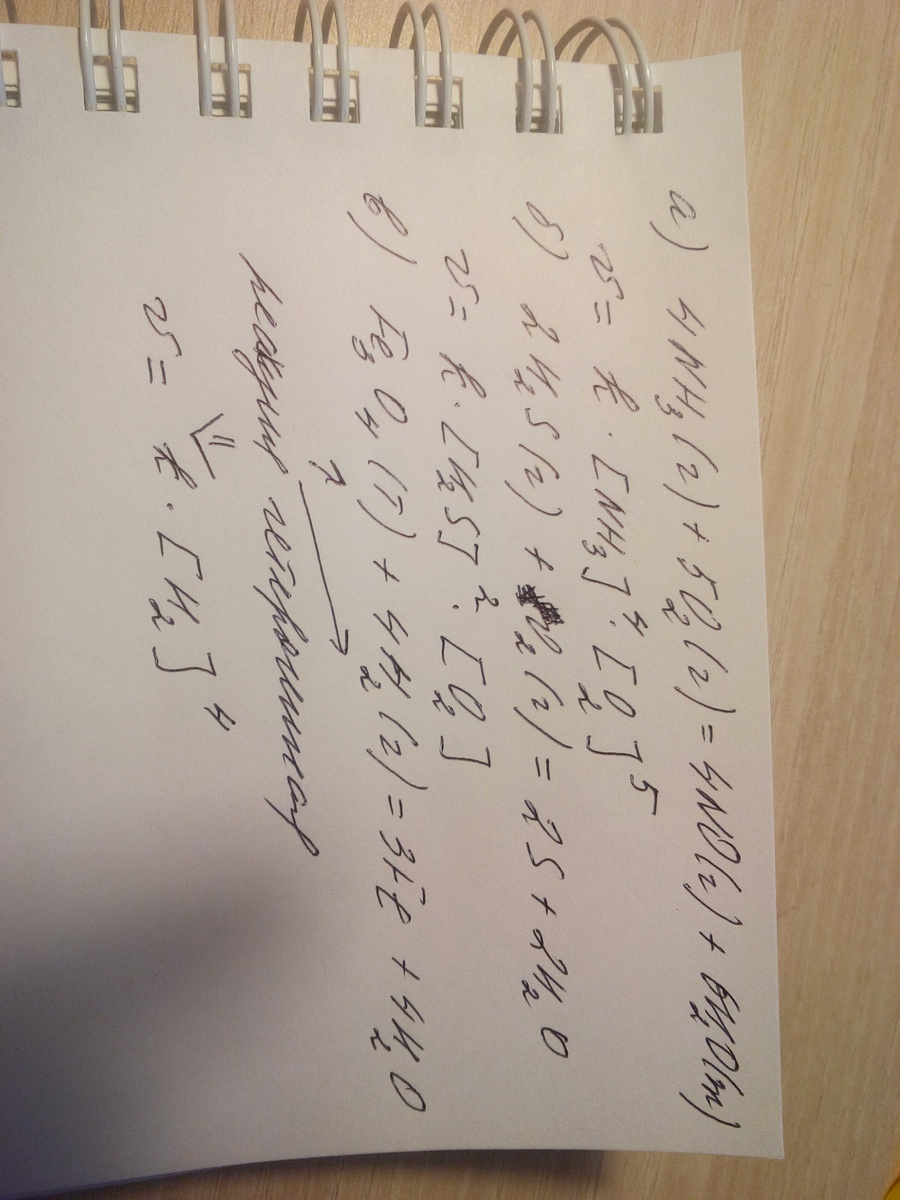 а) 4NH₃(г) + 5O₂(г) = 4NO(г) + 6H₂O(ж)
v = k · [NH₃]⁴ · [O₂]⁵
б) 2H₂S(г) + O₂(г) = 2S + 2H₂O
v = k · [H₂S]² · [O₂]
в) Fe₃O₄(т) + 4H₂(г) = 3Fe + 4H₂O
реакция гетерогенная
v = k · [H₂]⁴